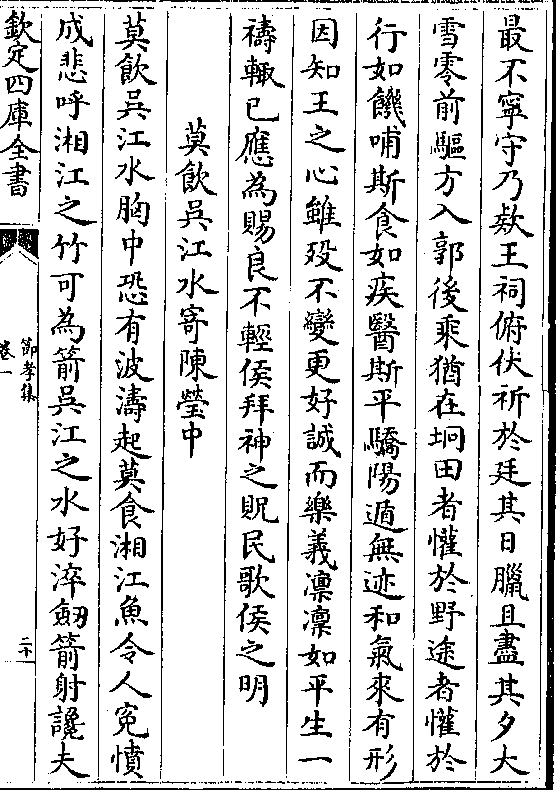 最不寧守乃欵王祠俯伏祈於廷其日臘且盡其夕大
雪零前驅方入郭後乘猶在坰田者懽於野途者懽於
行如饑哺斯食如疾醫斯平驕陽遁無迹和氣來有形
因知王之心雖殁不變更好誠而樂義凛凛如平生一
禱輙已應為賜良不輕侯拜神之貺民歌侯之明
莫飲吳江水寄陳瑩中
莫飲吳江水胸中恐有波濤起莫食湘江魚令人寃憤
成悲呼湘江之竹可為箭吳江之水好淬劒箭射讒夫
欽定四庫全書
節孝集
卷一
二十一